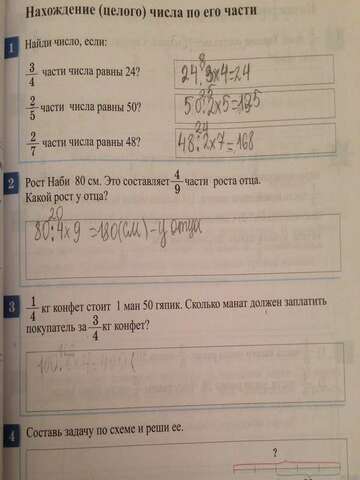 Нахождение (целого) числа по его части
1 Найди число, если:
3/4 части числа равны 24?
8
24:3x4=24
2/5 части числа равны 50?
25
50:2x5=125
2/7 части числа равны 48?
24
48:2x7=168
2 Рост Наби 80 см. Это составляет 4/9 части роста отца.
Какой рост у отца?
20
80:4x9=180(см)-у отца
3 1/4 кг конфет стоит 1 ман 50 гяпик. Сколько манат должен заплатить
покупатель за 3/4 кг конфет?
4 Составь задачу по схеме и реши ее.
?